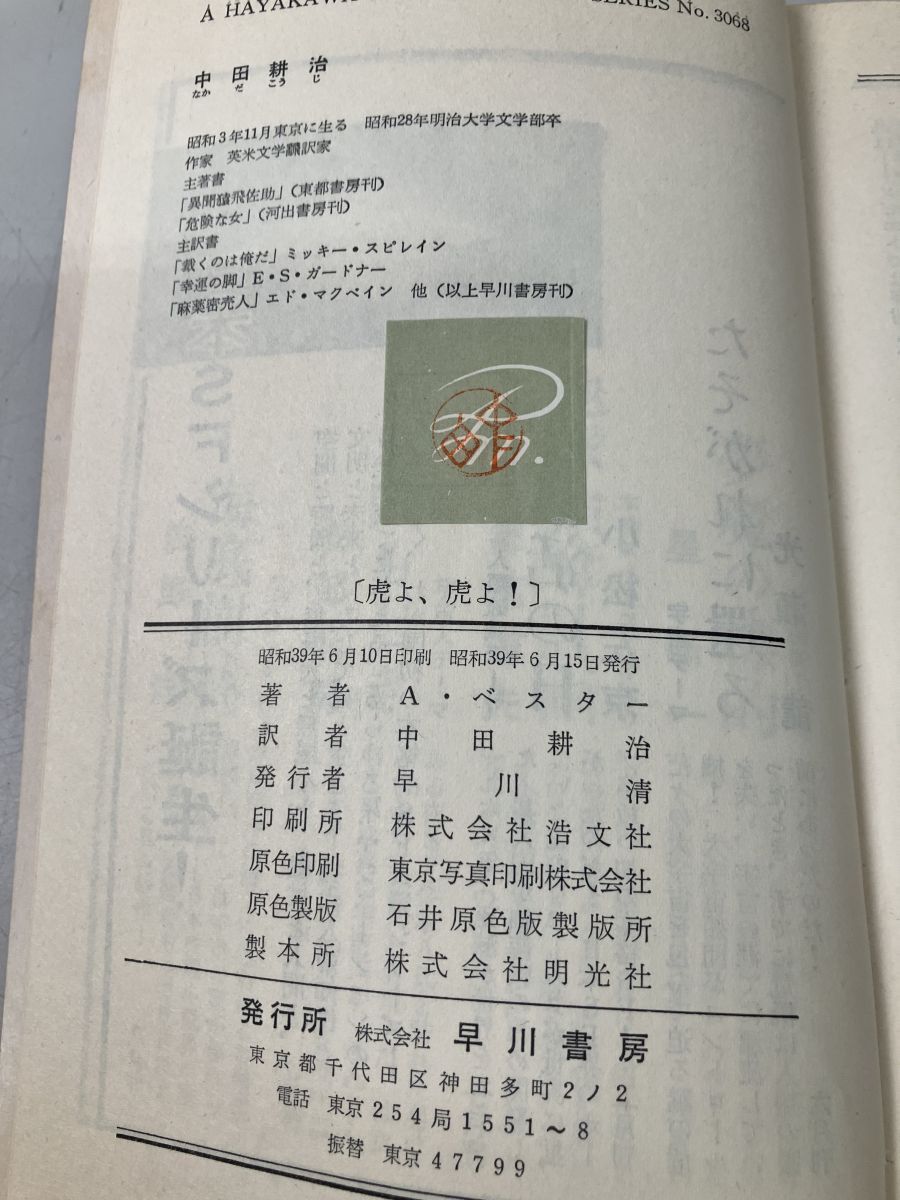 A HAYAKAWA SERIES No. 3068
中田耕治
なかだこうじ
昭和3年11月東京に生る 昭和28年明治大学文学部卒
作家 英米文学飜訳家
主著書
「異聞猿飛佐助」(東都書房刊)
「危険な女」(河出書房刊)
主訳書
「裁くのは俺だ」ミッキー・スピレイン
「幸運の脚」E・S・ガードナー
「麻薬密売人」エド・マクベイン 他(以上早川書房刊)
〔虎よ、虎よ!〕
昭和39年6月10日印刷 昭和39年6月15日発行
著者 A・ベスター
訳者 中田耕治
発行者 早川清
印刷所 株式会社浩文社
原色印刷 東京写真印刷株式会社
原色製版 石井原色版製版所
製本所 株式会社明光社
発行所 株式会社 早川書房
東京都千代田区神田多町2ノ2
電話 東京254局1551～8
振替 東京47799